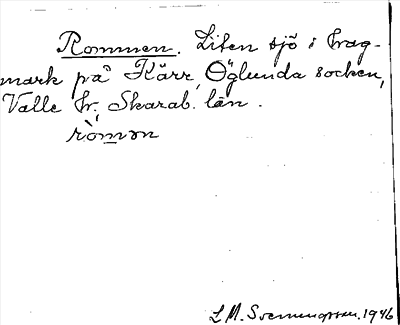 Rommen. Liten sjö i Crag-
mark på Kärr, Öglunda socken,
Valle hr., Skarab. län.
ròmən
L M. Svenungsson. 1946